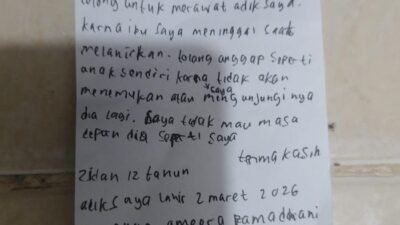 tolong untuk merawat adik saya.
karna ibu saya meninggal saat
melahirkan. tolong anggap seperti
anak sendiri karna tidak akan
saya
menemukan atau mengunjungi nya
dia lagi. saya tidak mau masa
depan dia seperti saya
terima kasih
Zidan 12 tahun
adik saya lahir 2 maret 2026
ameera ramadhani